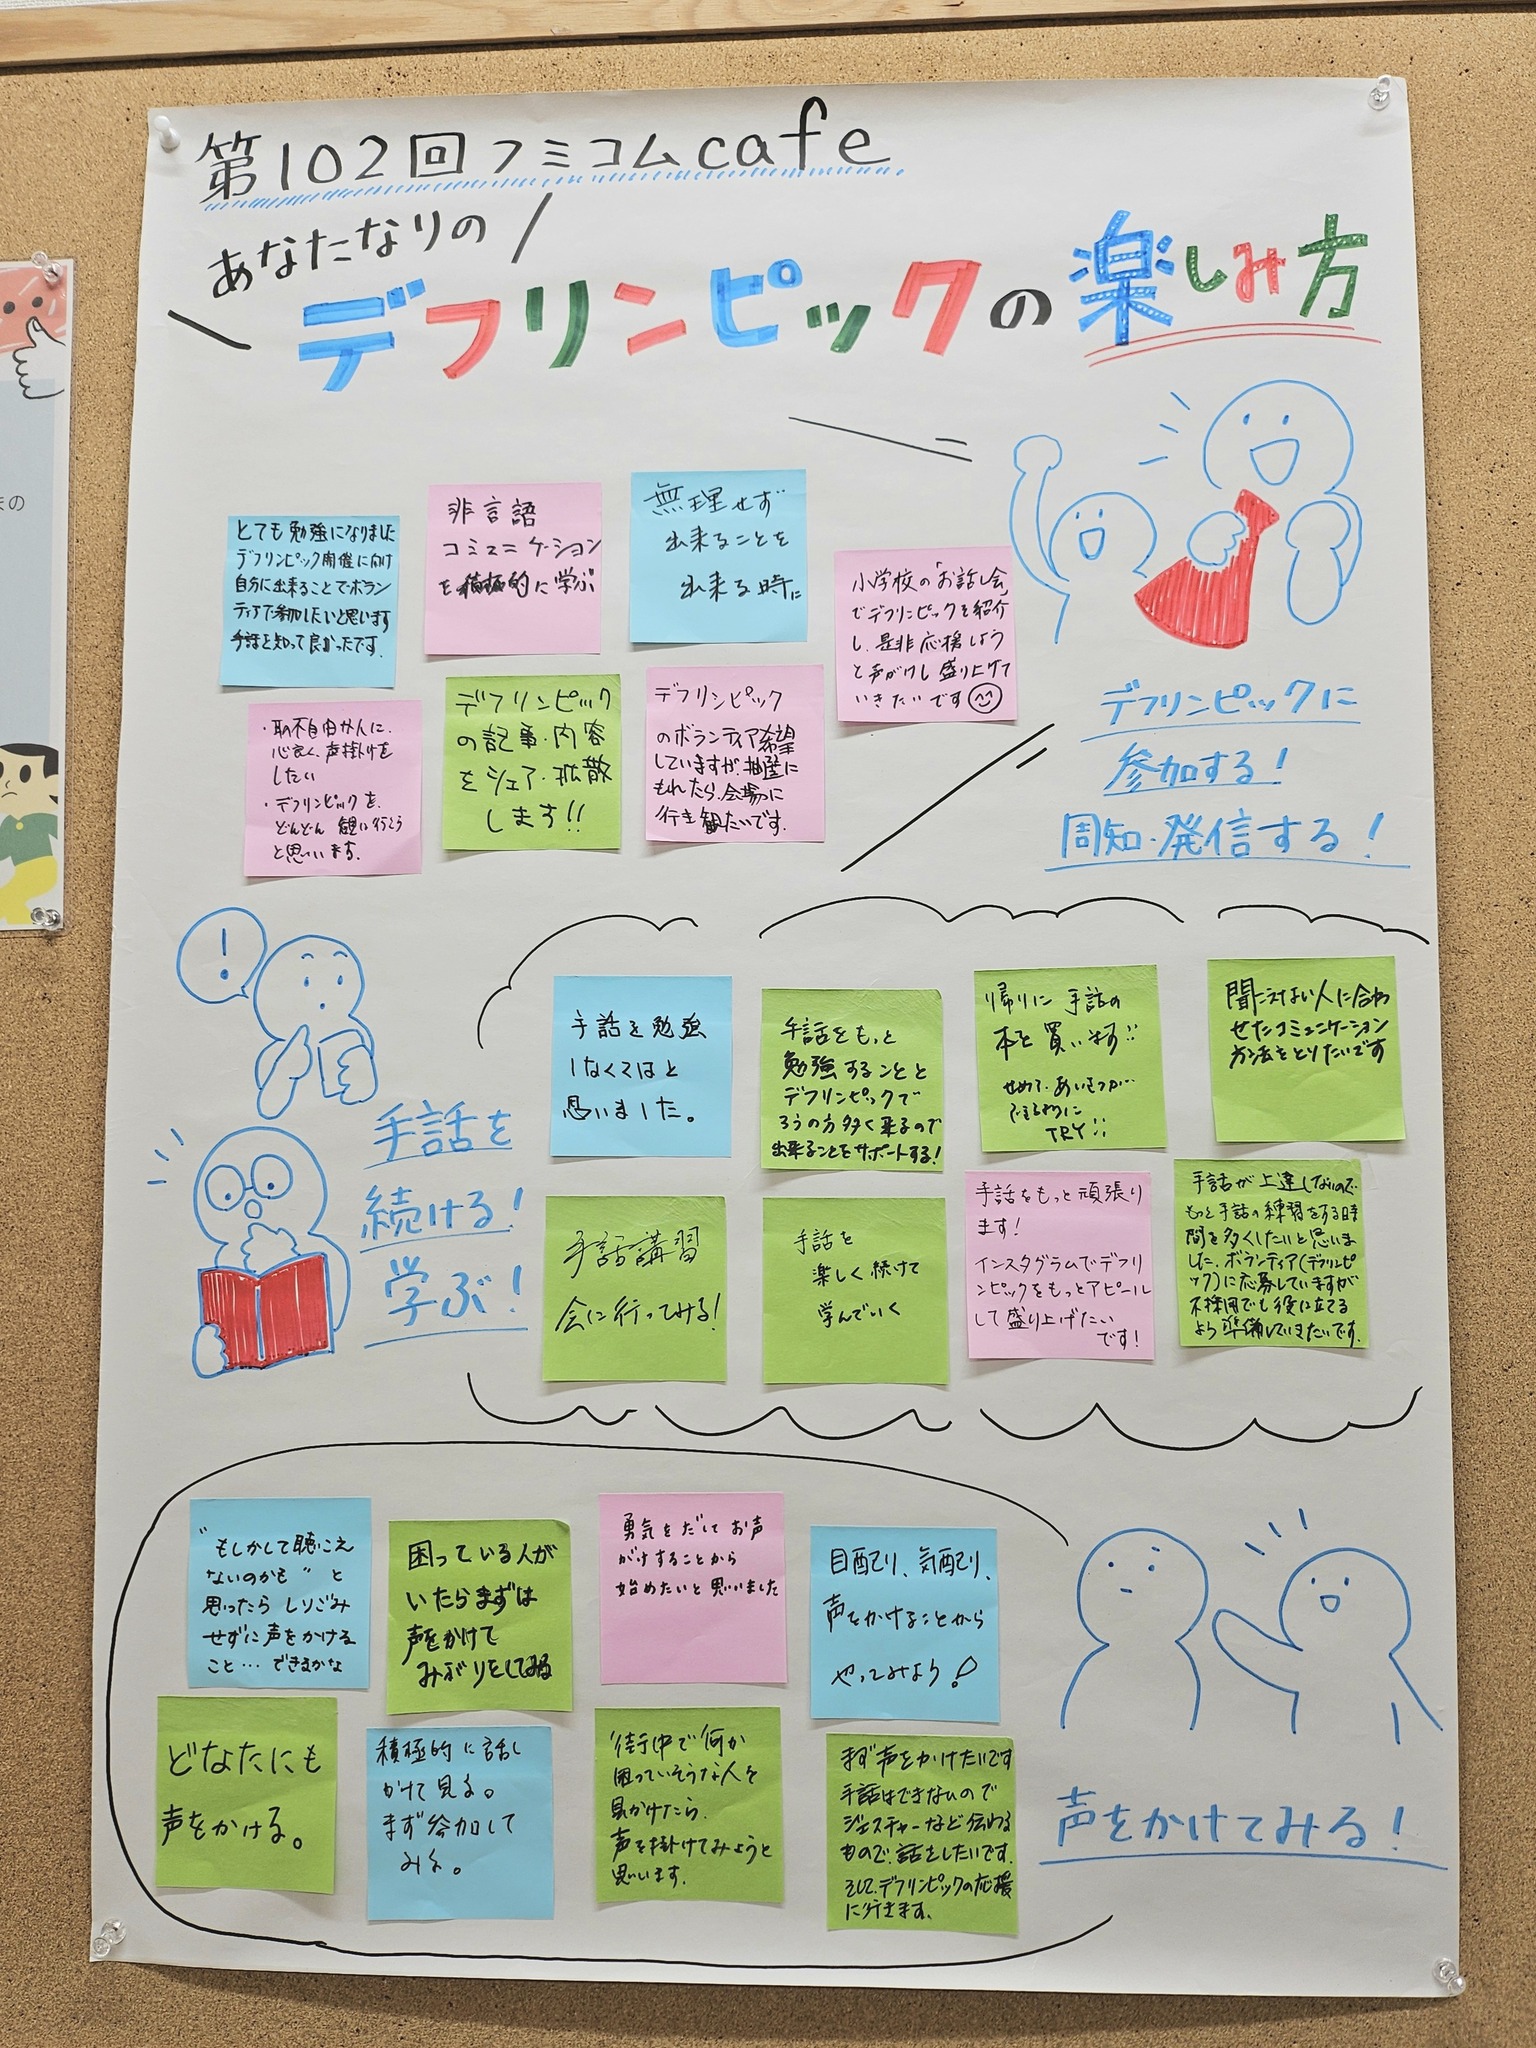 第102回フミコムcafe
あなたなりの
デフリンピックの楽しみ方
とても勉強になりました
デフリンピック開催に向け
自分に出来ることでボラン
ティアで参加したいと思います
手話を知って良かったです.
非言語
コミュニケーション
を積極的に学ぶ
無理せず
出来ることを
出来る時に
小学校の「お話し会」
でデフリンピックを紹介
し、是非応援しよう
と声がけし盛り上げて
いきたいです
・耳の不自由な人に、
心良く、声掛けを
したい
・デフリンピックを、
どんどん観に行こう
と思います。
デフリンピック
の記事・内容
をシェア・拡散
します!!
デフリンピック
のボランティア希望
していますが、抽選に
もれたら、会場に
行き観たいです.
デフリンピックに
参加する!
周知・発信する!
!
手話を
続ける!
学ぶ!
手話を勉強
しなくてはと
思いました。
手話をもっと
勉強することと
デフリンピックで
ろうの方多く来るので
出来ることをサポートする!
帰りに手話の
本を買います!!
せめて、あいさつが
できるように
TRY!!
聞こえない人に合わ
せたコミュニケーション
方法をとりたいです
手話講習
会に行ってみる!
手話を
楽しく続けて
学んでいく
手話をもっと頑張り
ます!
インスタグラムでデフリ
ンピックをもっとアピール
して盛り上げたい
です!
手話が上達しないので
もっと手話の練習をする時
間を多くしたいと思いま
した。ボランティア(デフリンピ
ック)に応募していますが
不採用でも役に立てる
よう準備していきたいです.
"もしかして聴こえ
ないのかも"と
思ったらしりごみ
せずに声をかける
こと…できるかな
困っている人が
いたらまずは
声をかけて
みぶりをしてみる
勇気をだしてお声
がけすることから
始めたいと思いました
目配り、気配り、
声をかけることから
やってみよう!
どなたにも
声をかける。
積極的に話し
かけて見る。
まず参加して
みる。
街中で何か
困っていそうな人を
見かけたら、
声を掛けてみようと
思います.
まず声をかけたいです
手話はできないので
ジェスチャーなど伝わる
もので、話をしたいです.
そして、デフリンピックの応援
に行きます。
声をかけてみる!